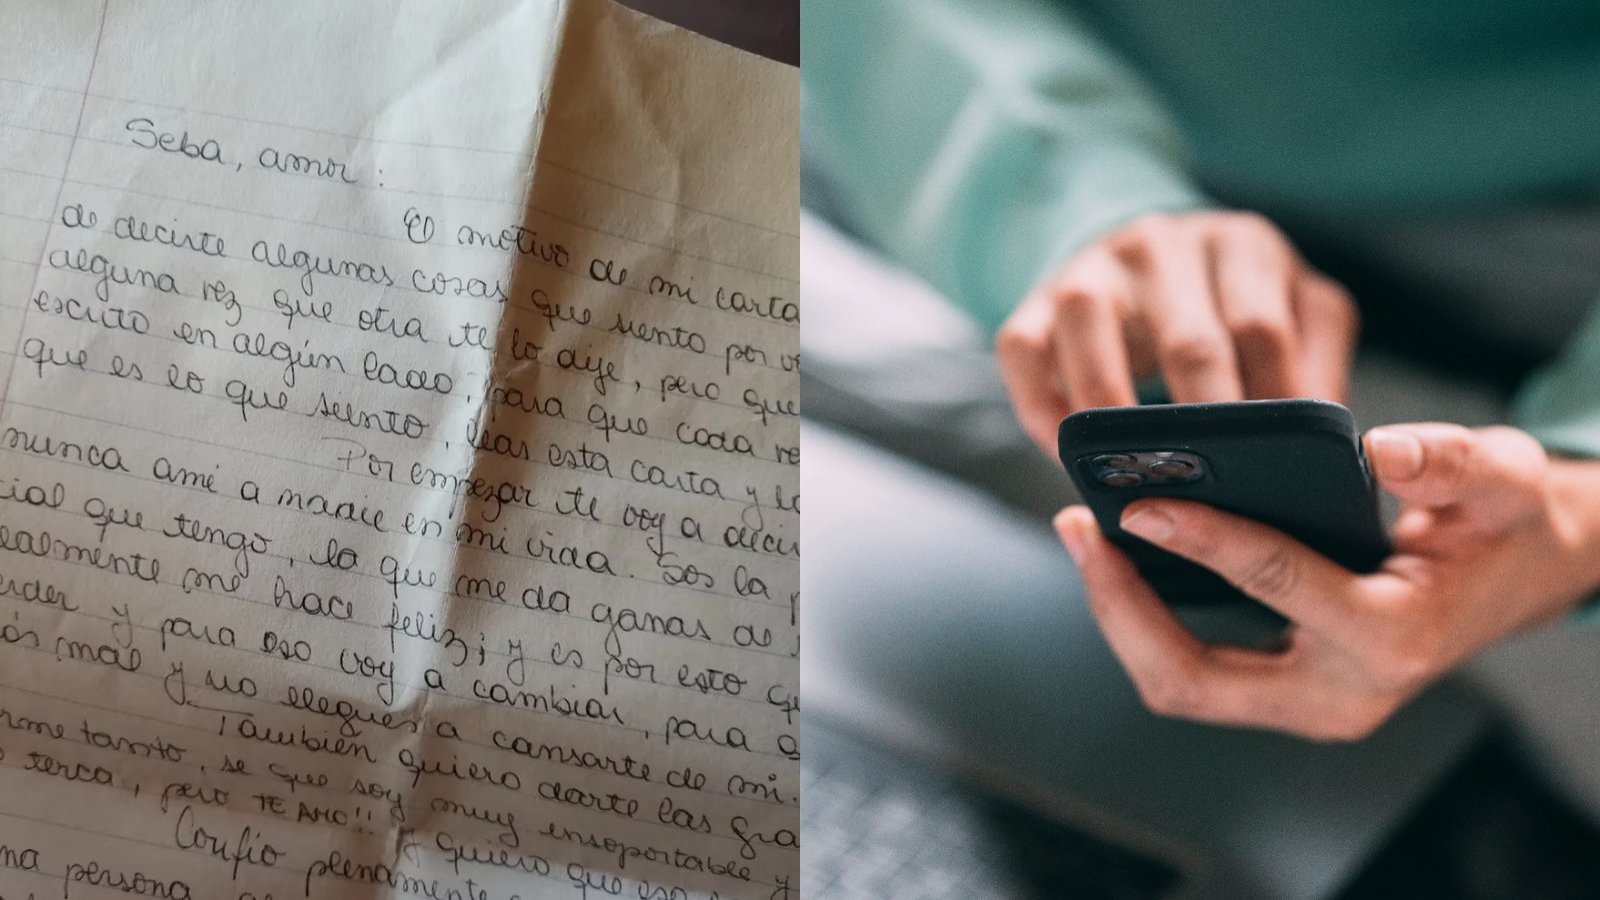 Seba, amor:
El motivo de mi carta
de decirte algunas cosas que siento por
alguna vez que otra te lo dije, pero que
escrito en algún lado; para que cada
que es lo que siento. leas esta carta y
Por empezar te voy a decir
nunca amé a nadie en mi vida. Sos la
que tengo, la que me da ganas de
me hace feliz; y es por esto
y para eso voy a cambiar, para
mal y no llegues a cansarte de mi.
También quiero darte las
tanto, se que soy muy insoportable y
terca, pero TE AMO!! quiero que eso
Confío plenamente
persona